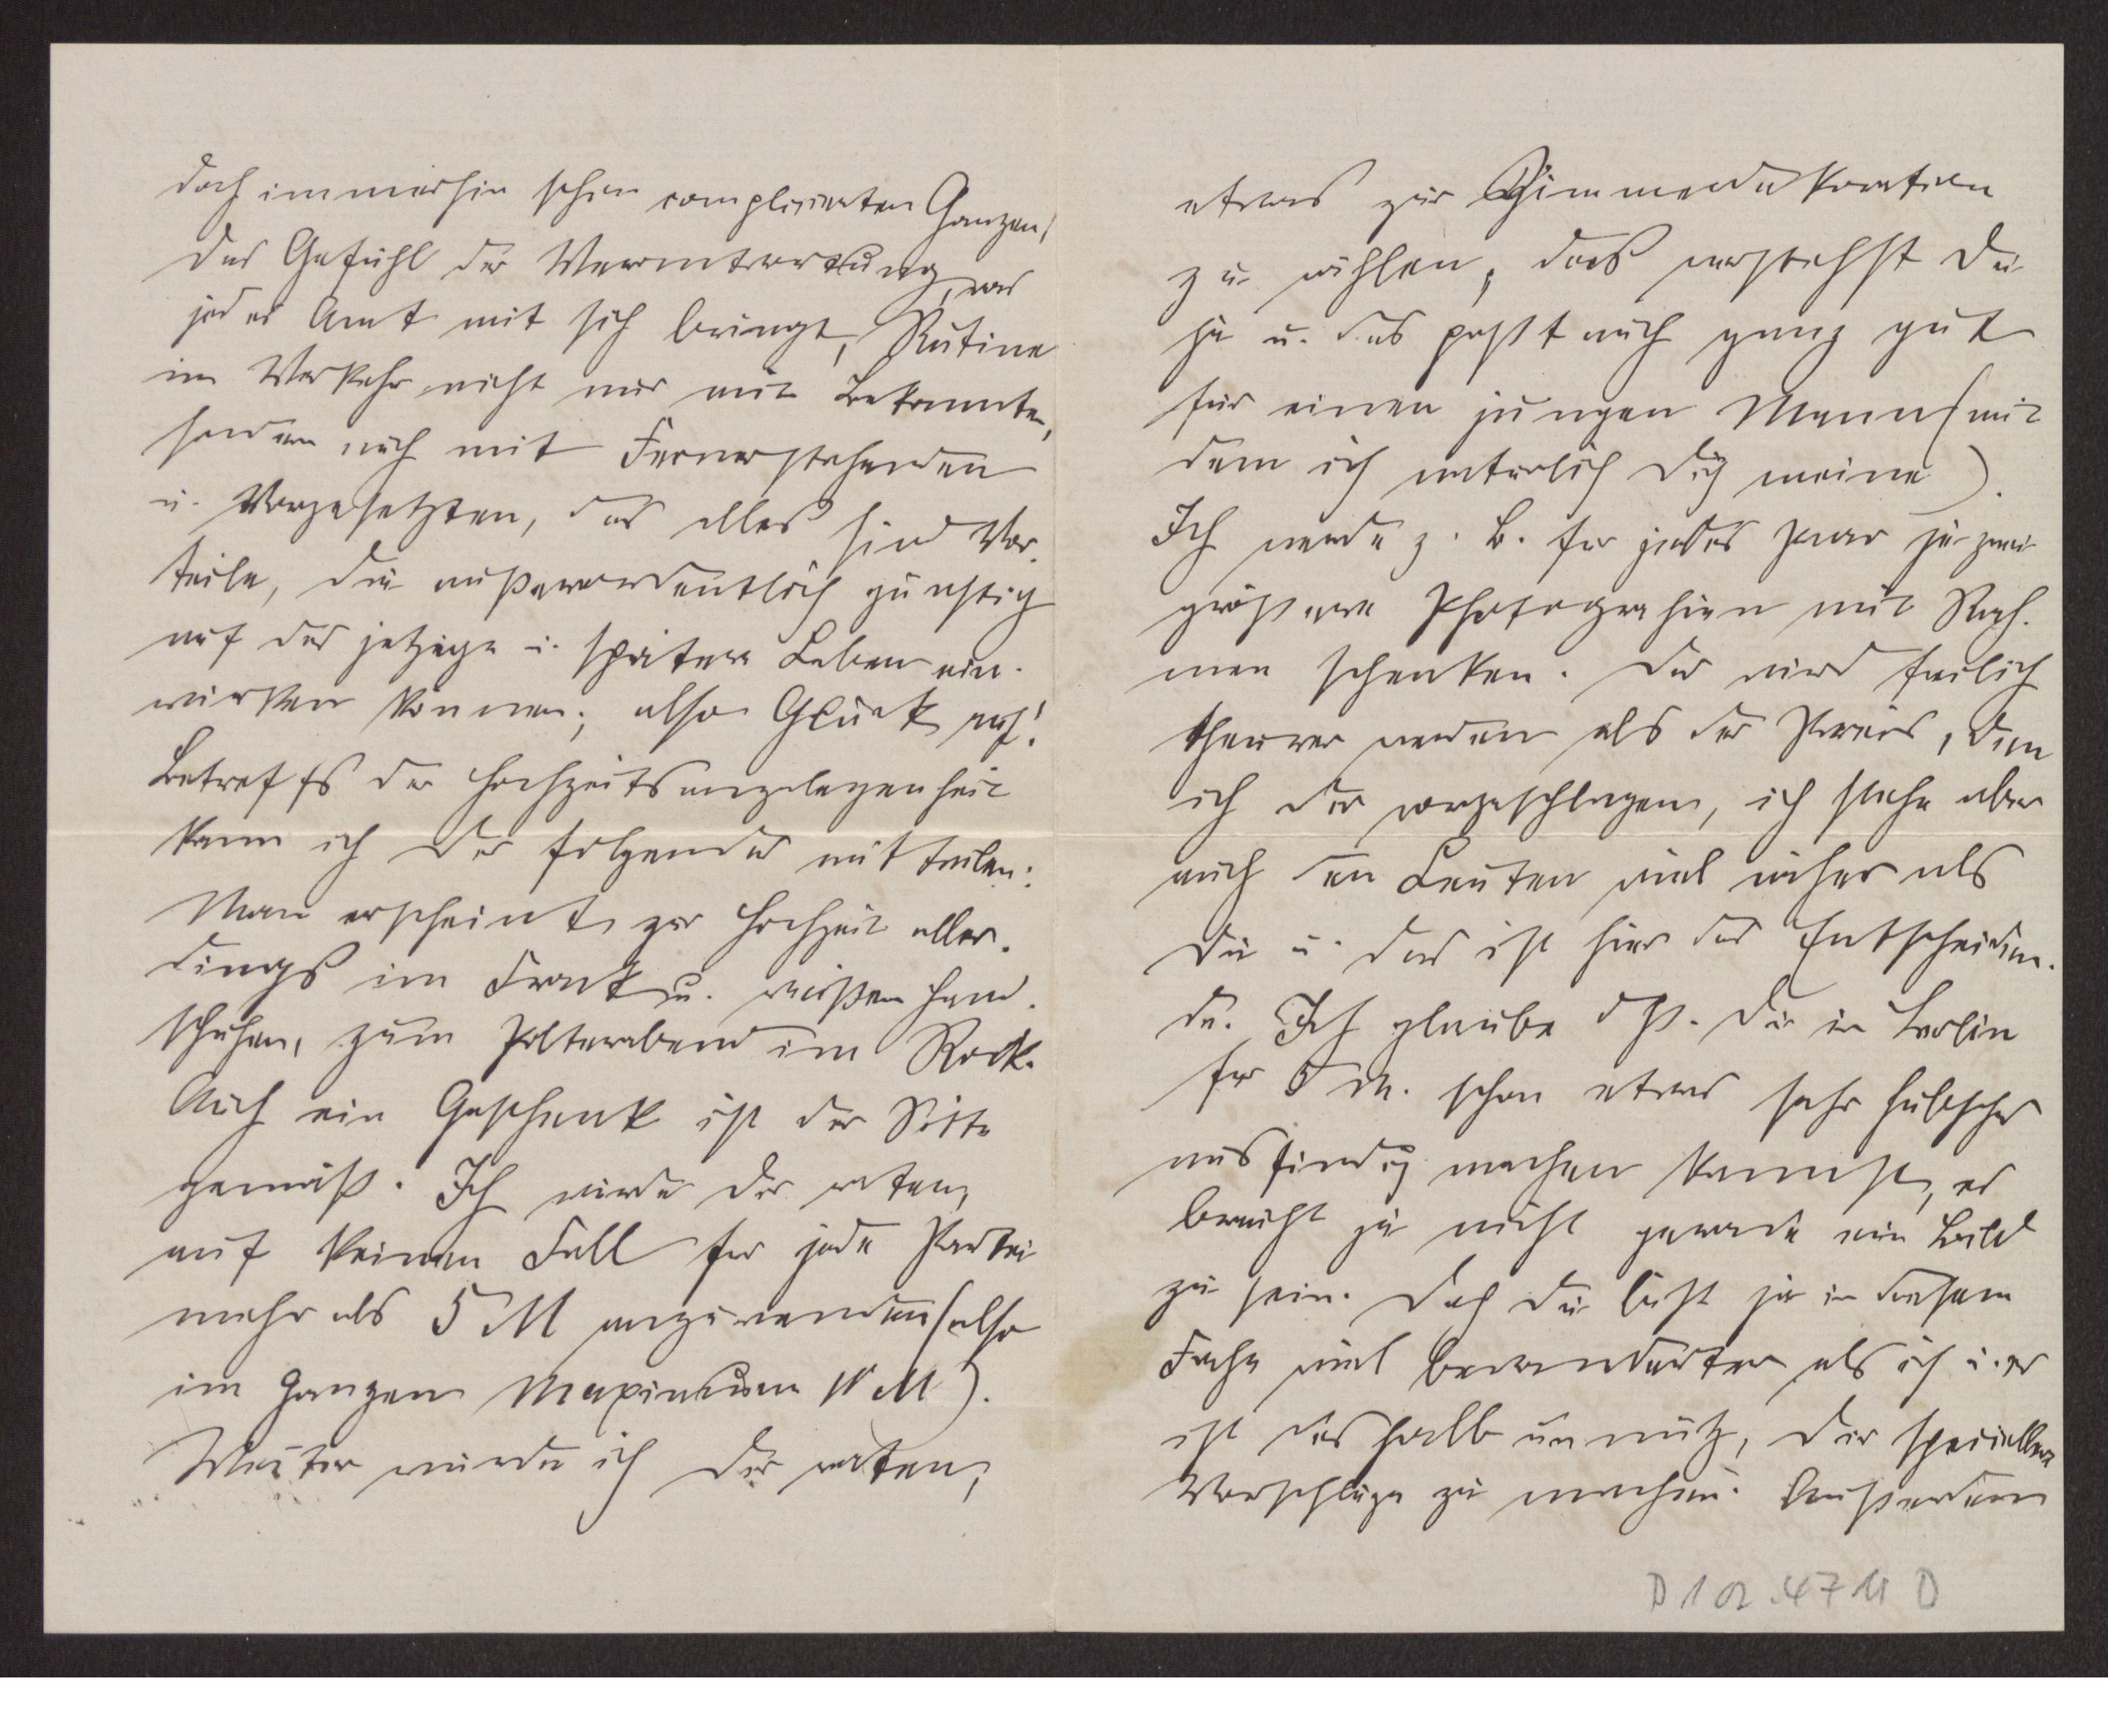 doch immerhin schon complicirten Ganzen,
das Gefühl der Verantwortung, was
jedes Amt mit sich bringt, Rutine
im Verkehr nicht nur mit Bekannten,
sondern auch mit Fernerstehenden
u. Vorgesetzten, das alles sind Vor-
teile, die außerordentlich günstig
auf das jetzige u. spätere Leben ein-
wirken können; also Glück auf!
Betreffs der Hochzeitsangelegenheit
kann ich Dir folgendes mitteilen:
Man erscheint zur Hochzeit aller-
dings im Frack u. weißen Hand-
schuhen, zum Polterabend im Rock.
Auch ein Geschenk ist der Sitte
gemäß. Ich würde Dir raten,
auf keinen Fall für jede Partei
mehr als 5 M anzuwenden (also
im Ganzen Maximum 10 M).
Weiter würde ich Dir raten,
etwas zur Zimmerdekoration
zu wählen, das verstehst Du
ja u. das paßt auch ganz gut
für einen jungen Mann (mit
dem ich natürlich Dich meine).
Ich werde z. B. für jedes Paar je zwei
größere Photograhien mit Rah-
men schenken. Das wird freilich
theurer werden als der Preis, den
ich Dir vorgeschlagen, ich stehe aber
auch den Leuten viel näher als
Du u. das ist hier das Entscheiden-
de. Ich glaube dß. Du in Berlin
für 5 M. schon etwas sehr hübsches
ausfindig machen kannst, es
braucht ja nicht gerade ein Bild
zu sein. Doch Du bist ja in diesem
Fache viel bewanderter als ich u. es
ist deshalb unnütz, Dir speciellere
Vorschläge zu machen. Außerdem